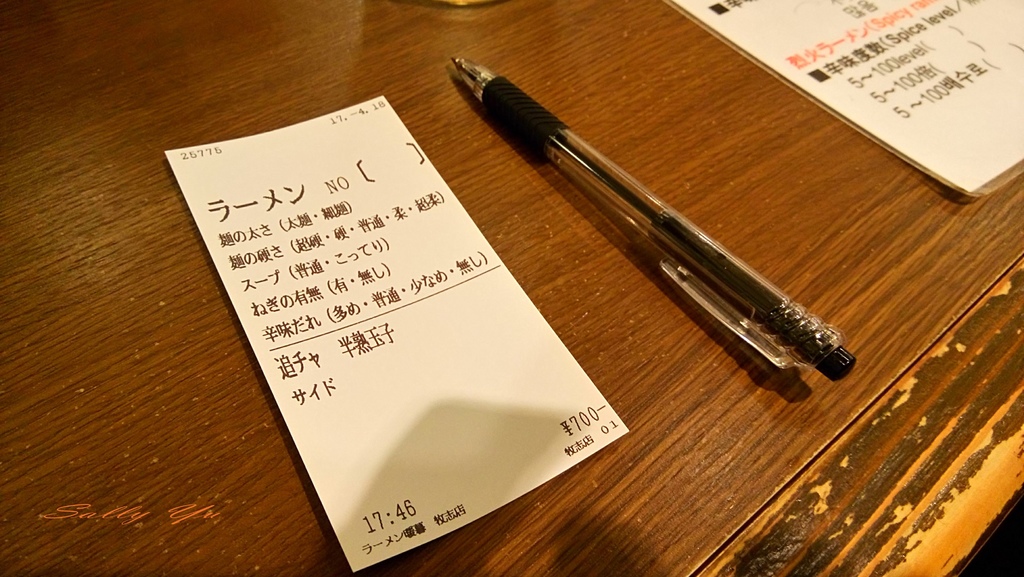 17.-4.18
25775
ラーメン NO〔 〕
麺の太さ(太麺・細麺)
麺の硬さ(超硬・硬・普通・柔・超柔)
スープ(普通・こってり)
ねぎの有無(有・無し)
辛味だれ(多め・普通・少なめ・無し)
追チャ 半熟玉子
サイド
¥700-
牧志店 01
17:46
ラーメン暖暮 牧志店
烈火ラーメン(Spicy ram
■辛味度数(Spice level/
5~100level( )
5~100倍( )
5~100배수로(
Sally Yu